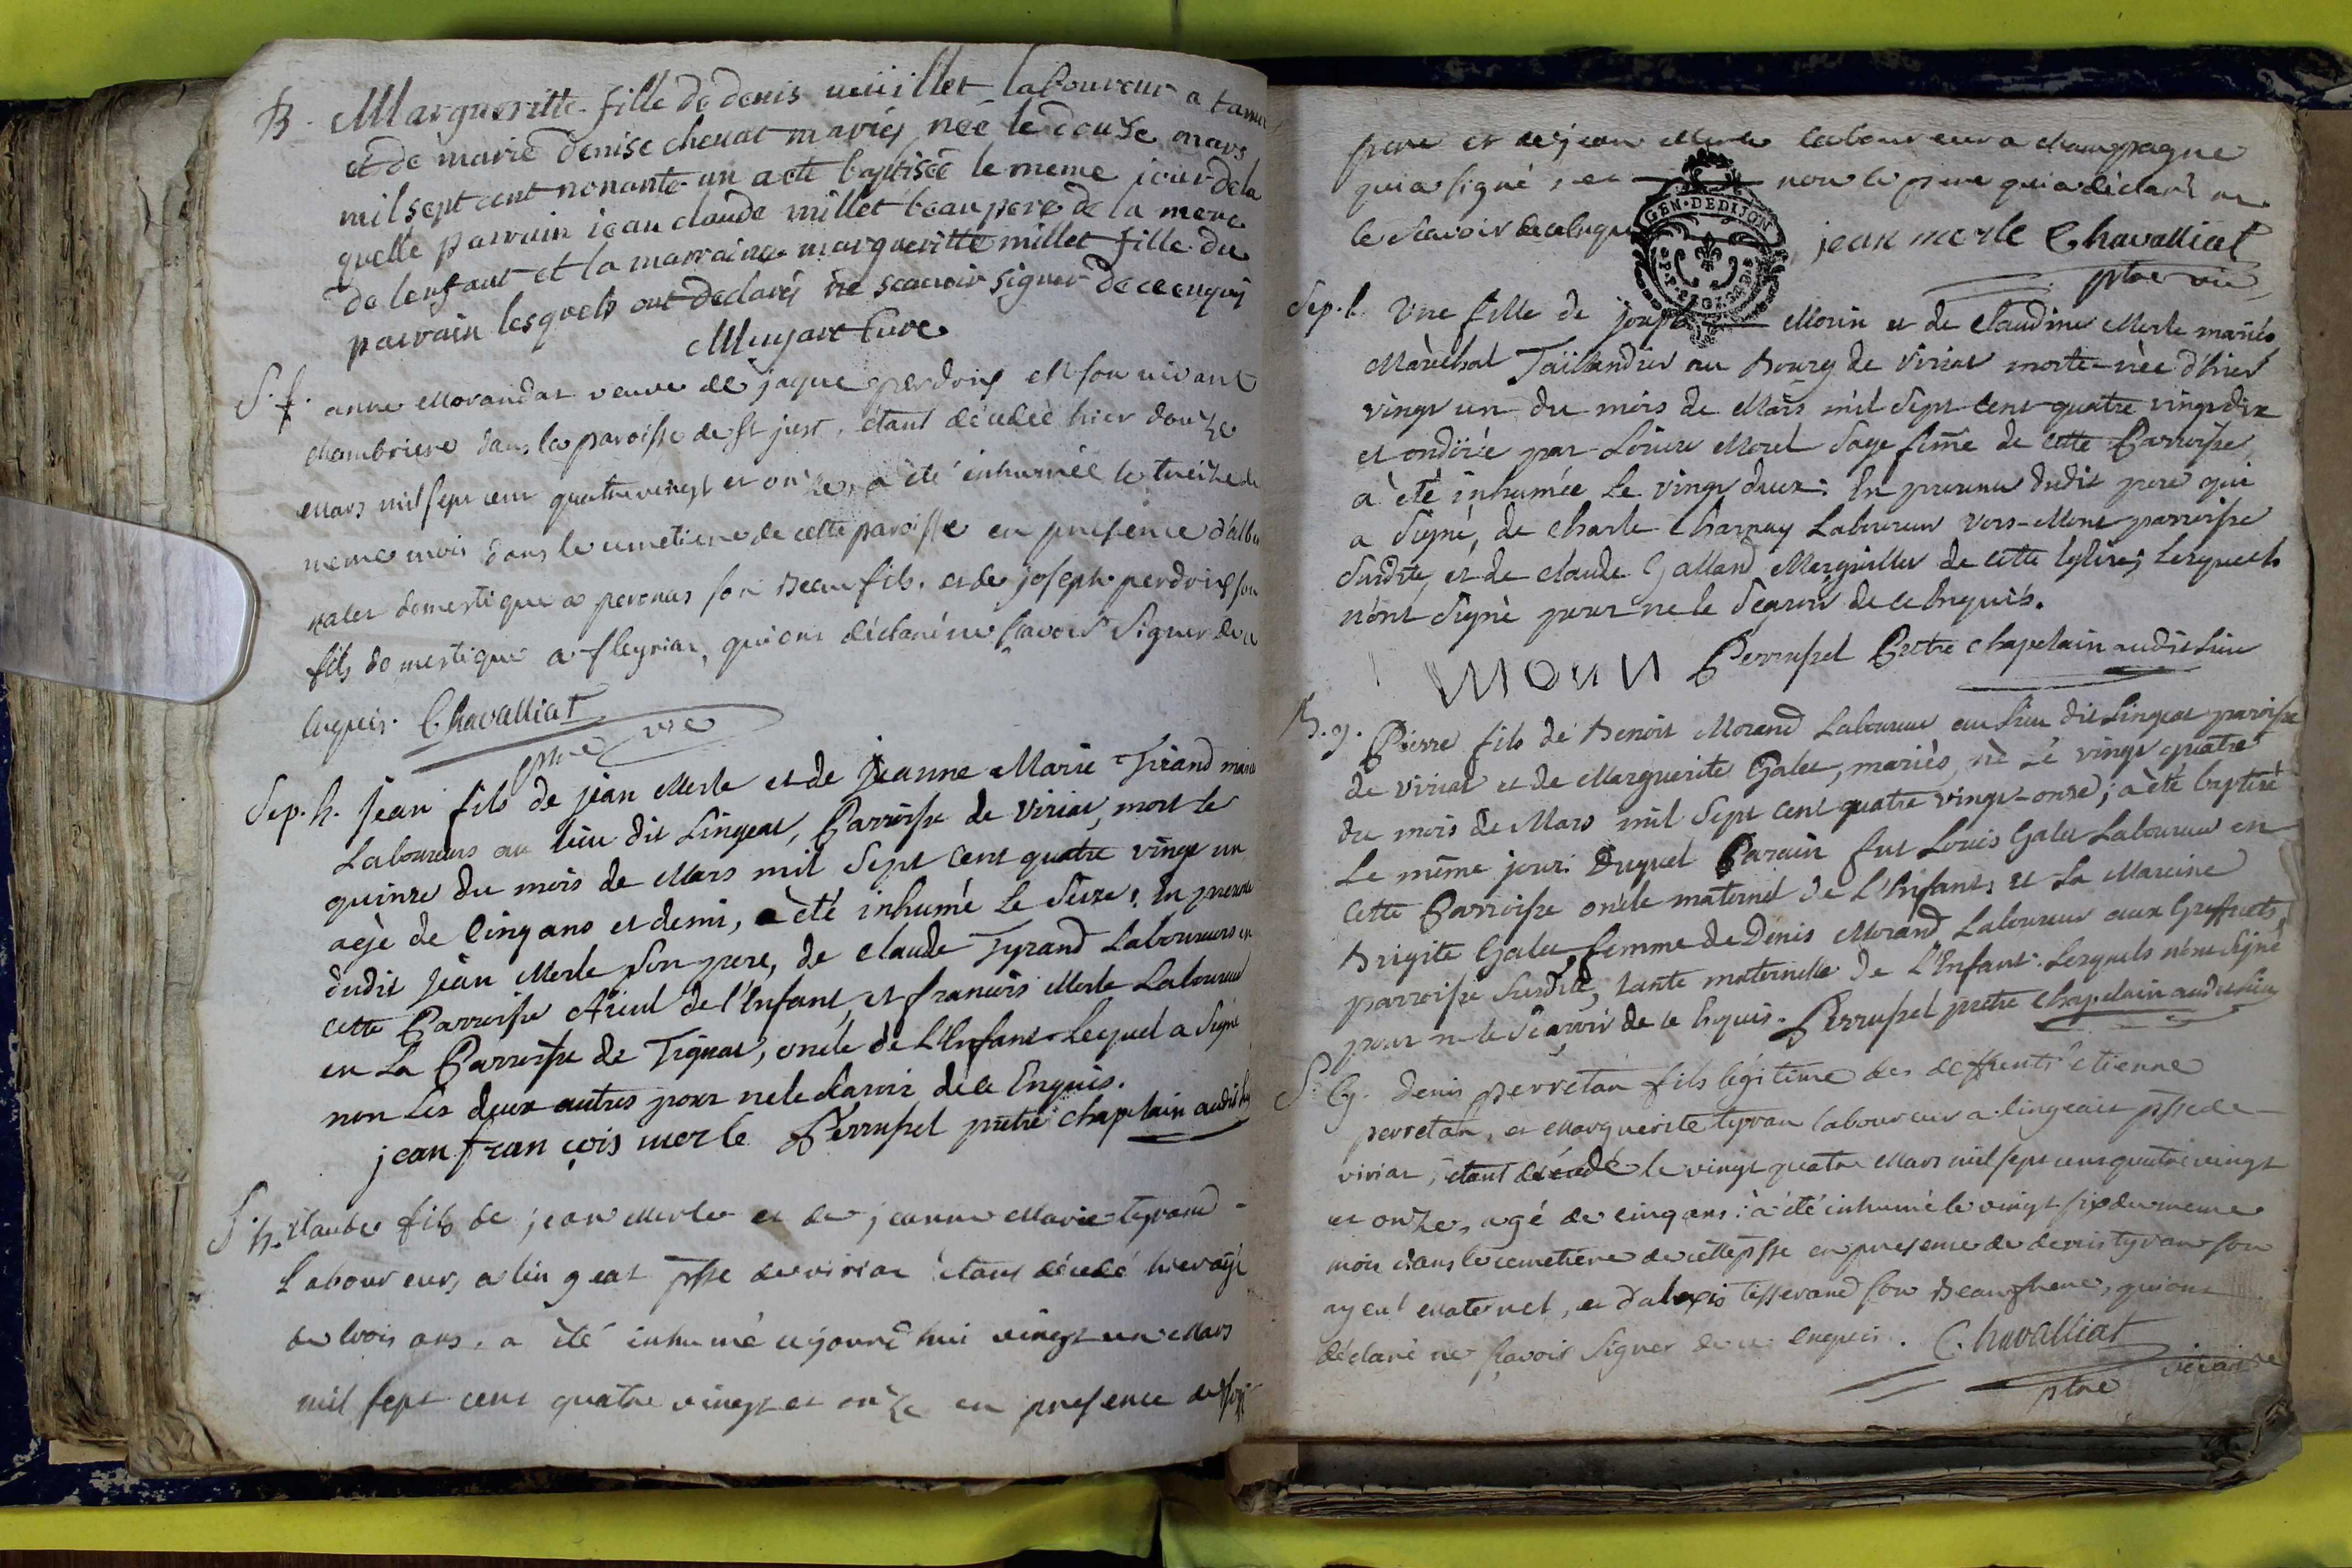 B. Margueritte fille de denis millet laboureur a tanv
et de marie denise chenat mariés, née le douze mars
mil sept cent nonante-un a eté baptisée le meme jour de la
quelle parrain jean claude millet beau pere de la mere
de lenfant et la marraine margueritte millet fille du
parrain lesquels ont declarés ne scavoir signer de ce enquis
Mujart Curé
S. f. anne Morandat veuve de jaque perdrix est son vivant
chambriere dans la paroisse de St just, étant décédée hier douze
Mars mil sept cent quatre vingt et onze, a été inhumée le treize du
meme mois dans le cimetiere de cette paroisse en presence d'albin
valet domestique a peronas son Beau fils, et de joseph perdrix son
fils domestique a fleyriat, qui ont déclaré ne sçavoir signer de ce
Enquis. Chavalliat
ptre vic
Sep. h. Jean fils de jean Merle et de Jeanne Marie Tirand mariés
Laboureurs au lieu dit Lingeat, Parroisse de Viriat, mort le
quinze du mois de Mars mil Sept Cent quatre vingt un
agè de Cinq ans et demi, a èté inhumé Le Seize; En presence
dudit Jean Merle son pere, de Claude Tyrand Laboureurs en
cette Parroisse Aïeul de l'Enfant, et francois Merle Laboureur
en La Parroisse de Tignat, oncle de L'Enfant Lequel a Signé
non Les deux autres pour ne le sçavoir de ce Enquis.
jean fran çois merle Perrussel prêtre chapelain audit lieu
S. h. Claude fils de jean Merle et de jeanne Marie tyrand
Laboureurs, a lingeat psse de viriat étant décédé hier agé
de trois ans, a été inhumé cejourd'hui vingt un Mars
mil sept cent quatre vingt et onze en presence de son
pere et de jean Merle laboureur a champagne
qui a signé, et non le pere qui a déclaré ne
le sçavoir de ce enquis, jean merle Chavalliat
ptre vic
GEN. DE DIJON
Sep. f. Une fille de joseph Morin et de Claudine Merle mariés
Marèchal Taillandier au Bourg de Viriat morte-née d'hier
vingt un du mois de Mars mil Sept Cent quatre vingt dix
et ondoïé par Louise Morel Sage femme de cette Parroisse
a èté inhumée le vingt deux: En presence dudit pere qui
a Signé, de Charle Charnay Laboureur Vers-Mont parroisse
Susdite et de Claude Galland Marguillier de cette Eglise; Lesquels
n'ont Signé pour ne le Sçavoir de ce Enquis.
MORIN Perrussel Prêtre Chapelain audit Lieu
B. g. Pierre fils de Benoit Morand Laboureur au lieu dit Lingeat paroisse
de Viriat et de Marguerite Galet, mariés, nè Le vingt quatre
du mois de Mars mil Sept Cent quatre vingt-onze; a èté baptisé
Le même jour: Duquel Parain fut Louis Galet Laboureur en
cette Parroisse oncle maternel de L'Enfant; et La Mareine
Brigite Galet, femme de Denis Morand Laboureur aux Greffets,
parroisse Susdite, tante maternelle de L'Enfant. Lesquels n'ont Signé
pour ne le Sçavoir de ce Enquis. Perrussel prêtre chapelain audit lieu
S. G. Denis perretan fils légitime des deffunts étienne
perretan, et Marguerite tyran laboureur a lingeat psse de
viriat, étant décédé le vingt quatre Mars mil sept cent quatre vingt
et onze, agé de cinq ans: a été inhumé le vingt six du meme
mois dans le cemetiere de cette psse en presence de denis tyran son
ayeul maternel, et d'alexis tisserand son Beaufrere, qui ont
déclaré ne sçavoir signer de ce enquis. Chavalliat
ptre vicaire